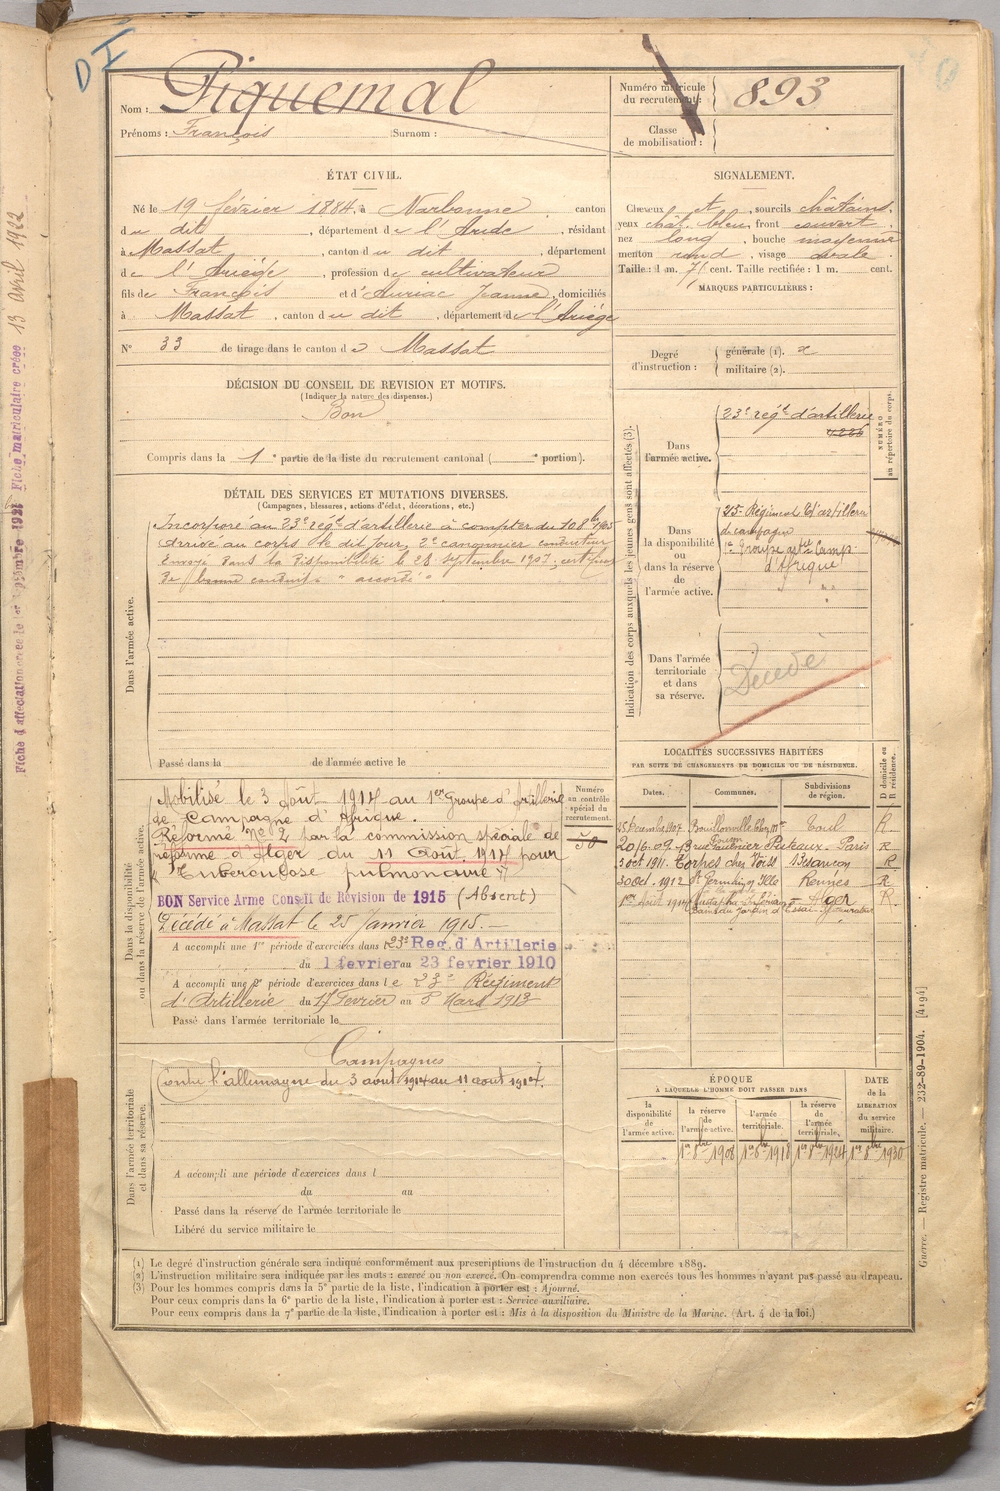 DI
Nom : Piquemal
Prénoms : François Surnom :
Numéro matricule du recrutement : 893
Classe de mobilisation :
ÉTAT CIVIL.
Né le 19 février 1884, à Narbonne, canton
du dit, département de l'Aude, résidant
à Massat, canton du dit, département
de l'Ariège, profession de cultivateur
fils de François et d'Auriac Jeanne, domiciliés
à Massat, canton du dit, département de l'Ariège
N° 33 de tirage dans le canton de Massat
SIGNALEMENT.
Cheveux et, sourcils châtains.
yeux chât. bleu, front couvert
nez long, bouche moyenne
menton rond, visage ovale
Taille : 1 m. 71 cent. Taille rectifiée : 1 m. cent.
MARQUES PARTICULIÈRES :
Degré d'instruction : générale (1). 2
militaire (2).
DÉCISION DU CONSEIL DE REVISION ET MOTIFS.
(Indiquer la nature des dispenses.)
Bon
Compris dans la 1e partie de la liste du recrutement cantonal ( portion).
DÉTAIL DES SERVICES ET MUTATIONS DIVERSES.
(Campagnes, blessures, actions d'éclat, décorations, etc.)
Dans l'armée active.
Incorporé au 23e régt d'artillerie à compter du 10 8bre 1905
Arrivé au corps le dit jour, 2e canonnier conducteur
Envoyé dans la disponibilité le 28 septembre 1907, certificat
de bonne conduite "accordé"
Passé dans la de l'armée active le
Indication des corps auxquels les jeunes gens sont affectés (3).
NUMÉRO au répertoire du corps.
Dans l'armée active.
23e régt d'artillerie
Dans la disponibilité ou dans la réserve de l'armée active.
25e Régiment d'artillerie
de campagne
1er Groupe artie Camp.
d'Afrique
Dans l'armée territoriale et dans sa réserve.
Décédé
Dans la disponibilité ou dans la réserve de l'armée active.
Numéro au contrôle spécial du recrutement.
50
Mobilisé le 3 Août 1914 au 1er Groupe d'artillerie
de Campagne d'Afrique.
Réformé N° 2 par la commission spéciale de
réforme d'Alger du 11 Août 1914 pour
"Tuberculose pulmonaire"
BON Service Armé Conseil de Révision de 1915 (Absent)
Décédé à Massat le 25 Janvier 1915.
A accompli une 1re période d'exercices dans l 23e Reg. d'Artillerie
du 1 fevrier au 23 fevrier 1910
A accompli une 2e période d'exercices dans le 23e Régiment
d'Artillerie du 17 Février au 5 Mars 1913
Passé dans l'armée territoriale le
LOCALITÉS SUCCESSIVES HABITÉES
PAR SUITE DE CHANGEMENTS DE DOMICILE OU DE RÉSIDENCE.
Dates. Communes. Subdivisions de région. D domicile ou R résidence.
15 Décembre 1907 Bouillonville Toul R.
20/6.09. Puteaux - Paris R
3 oct 1911. Torpes chez Voiss Besançon R
30 oct. 1912 St Germain s/ Ille Rennes R
1er Août 1914 Mustapha Alger R.
Dans l'armée territoriale et dans sa réserve.
Campagnes
Contre l'allemagne du 3 août 1914 au 11 août 1914.
A accompli une période d'exercices dans l
du au
Passé dans la réserve de l'armée territoriale le
Libéré du service militaire le
ÉPOQUE
À LAQUELLE L'HOMME DOIT PASSER DANS
la disponibilité de l'armée active. la réserve de l'armée active. l'armée territoriale. la réserve de l'armée territoriale. DATE de la LIBÉRATION du service militaire.
1er 8bre 1908 1er 8bre 1918 1er 8bre 1924 1er 8bre 1930
(1) Le degré d'instruction générale sera indiqué conformément aux prescriptions de l'instruction du 4 décembre 1889.
(2) L'instruction militaire sera indiquée par les mots : exercé ou non exercé. On comprendra comme non exercés tous les hommes n'ayant pas passé au drapeau.
(3) Pour les hommes compris dans la 5e partie de la liste, l'indication à porter est : Ajourné.
Pour ceux compris dans la 6e partie de la liste, l'indication à porter est : Service auxiliaire.
Pour ceux compris dans la 7e partie de la liste, l'indication à porter est : Mis à la disposition du Ministre de la Marine. (Art. 4 de la loi.)
Guerre. — Registre matricule. — 232-89-1904. [4194]
Fiche d'affectation créée le 1er septembre 1921 Fiche matriculaire créée 13 avril 1922